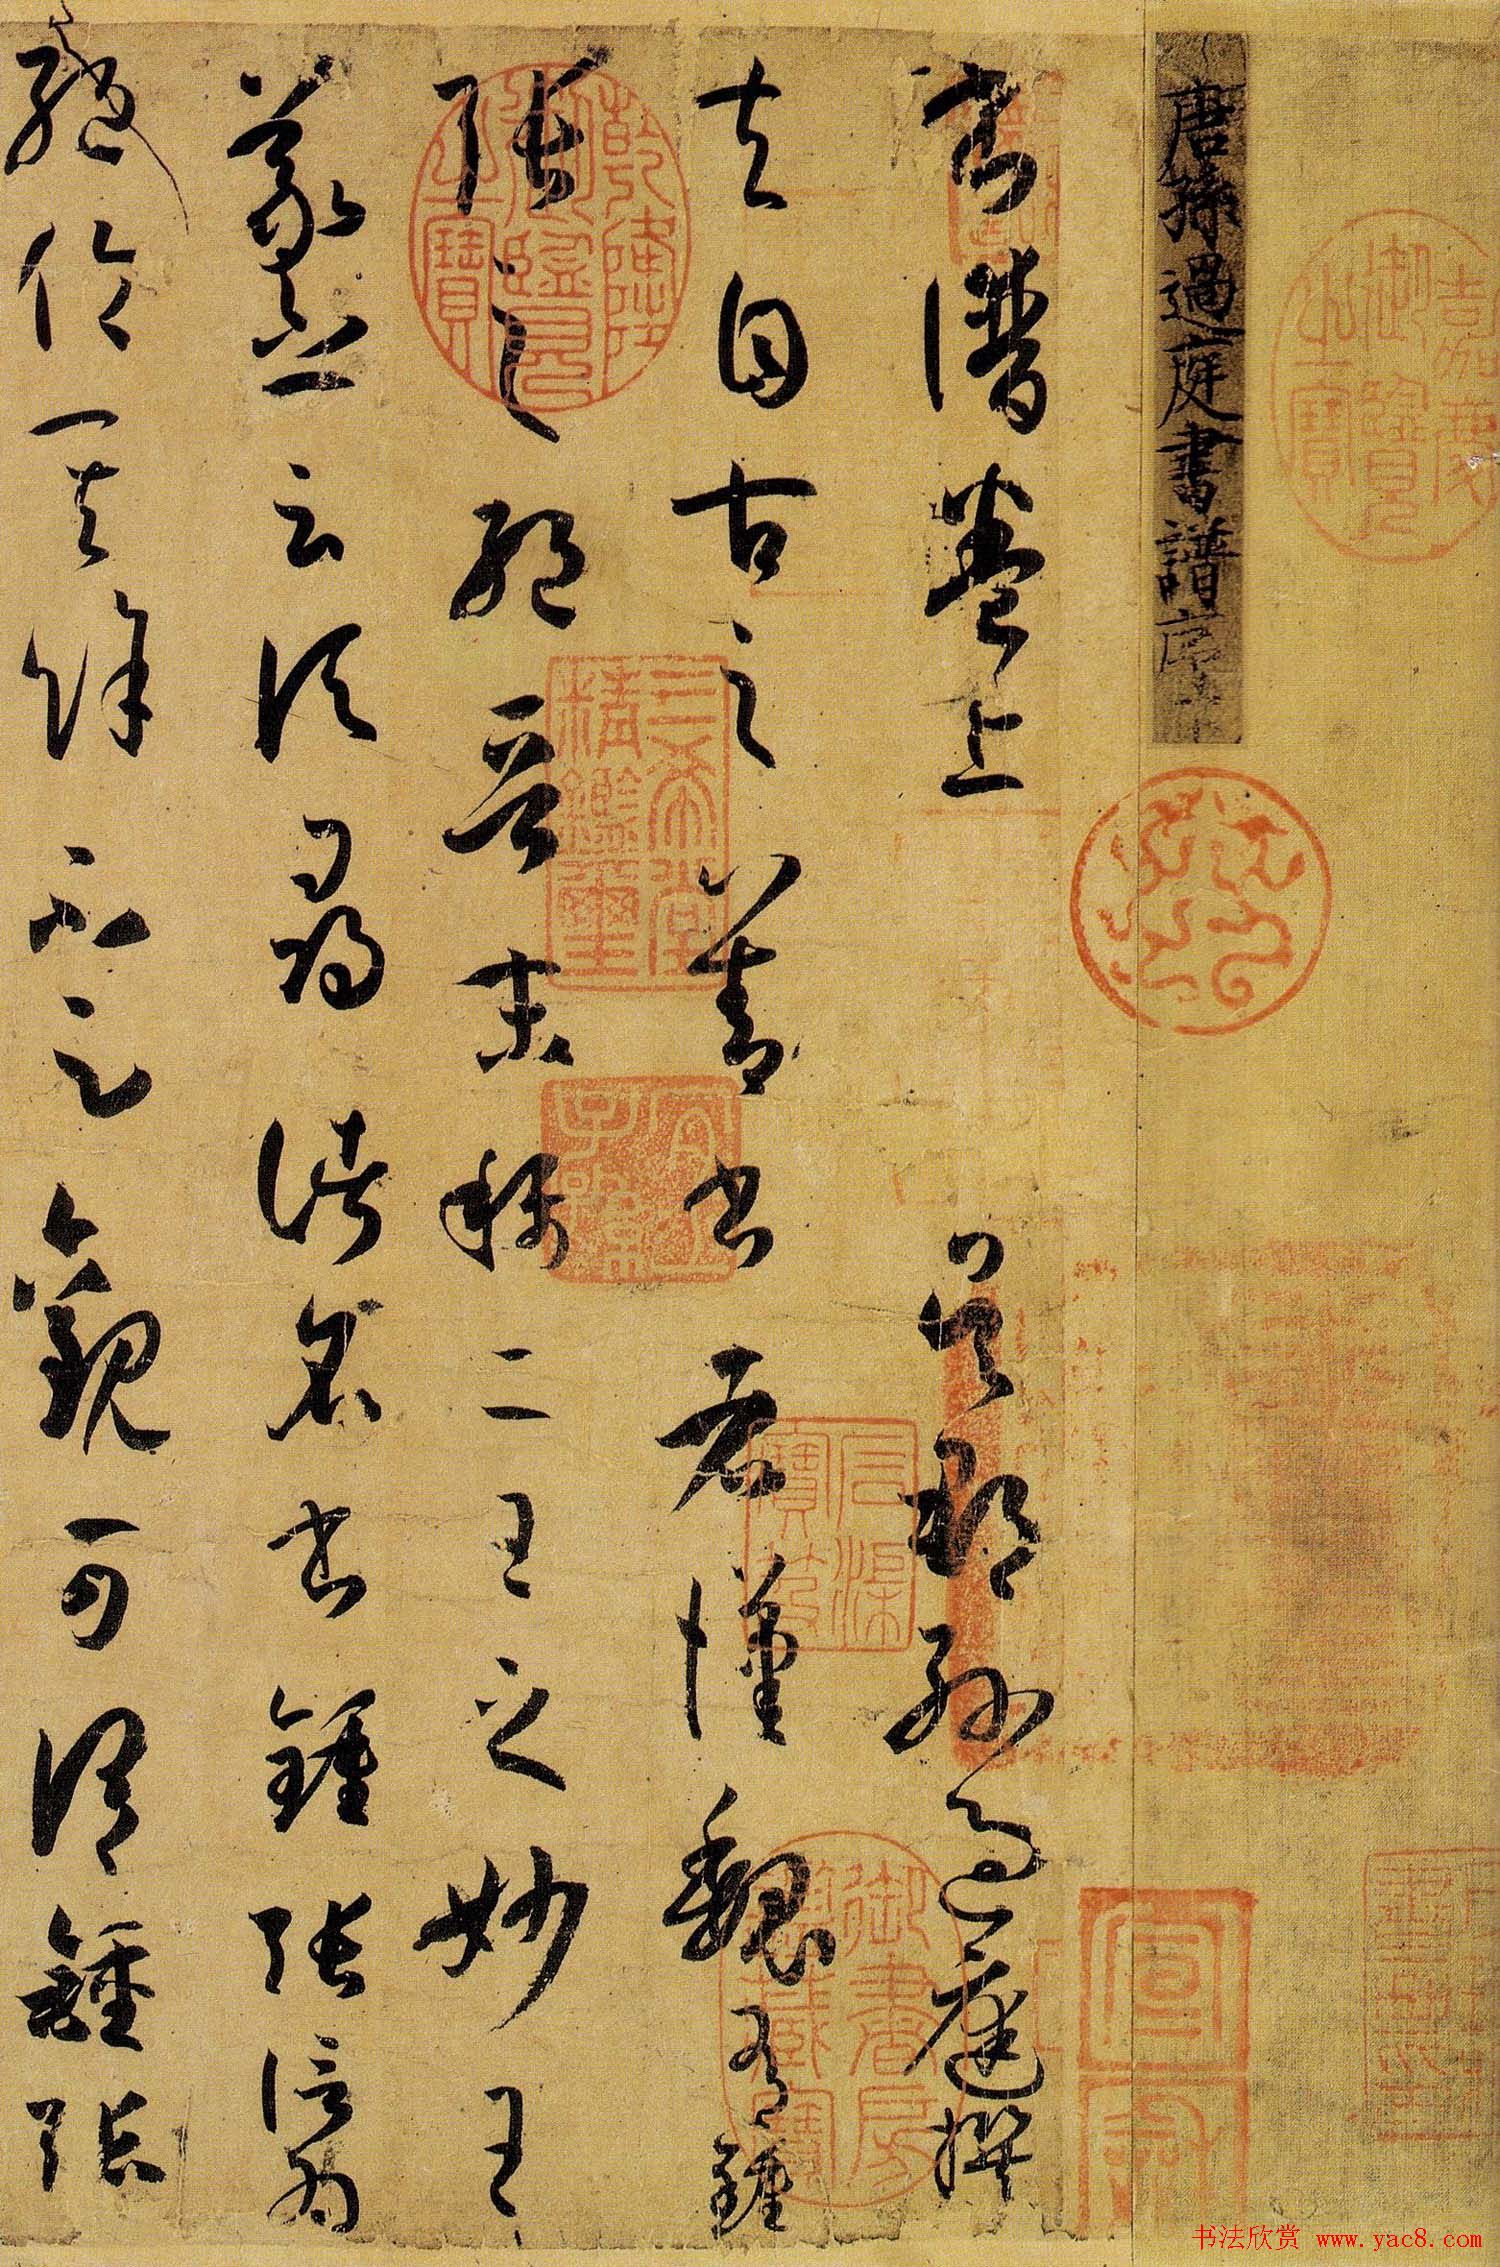 嘉慶御覽之寶
唐孫過庭書譜序
書譜卷上 吳郡孫過庭撰
夫自古之善書者漢魏有鍾
張之絕晉末稱二王之妙王
羲之云頃尋諸名書鍾張信為
絕倫其餘不足觀可謂鍾張
乾隆御覽之寶
三希堂精鑑璽
宜子孫
石渠寶笈
御書房鑑藏寶
书法欣赏 www.yac8.com